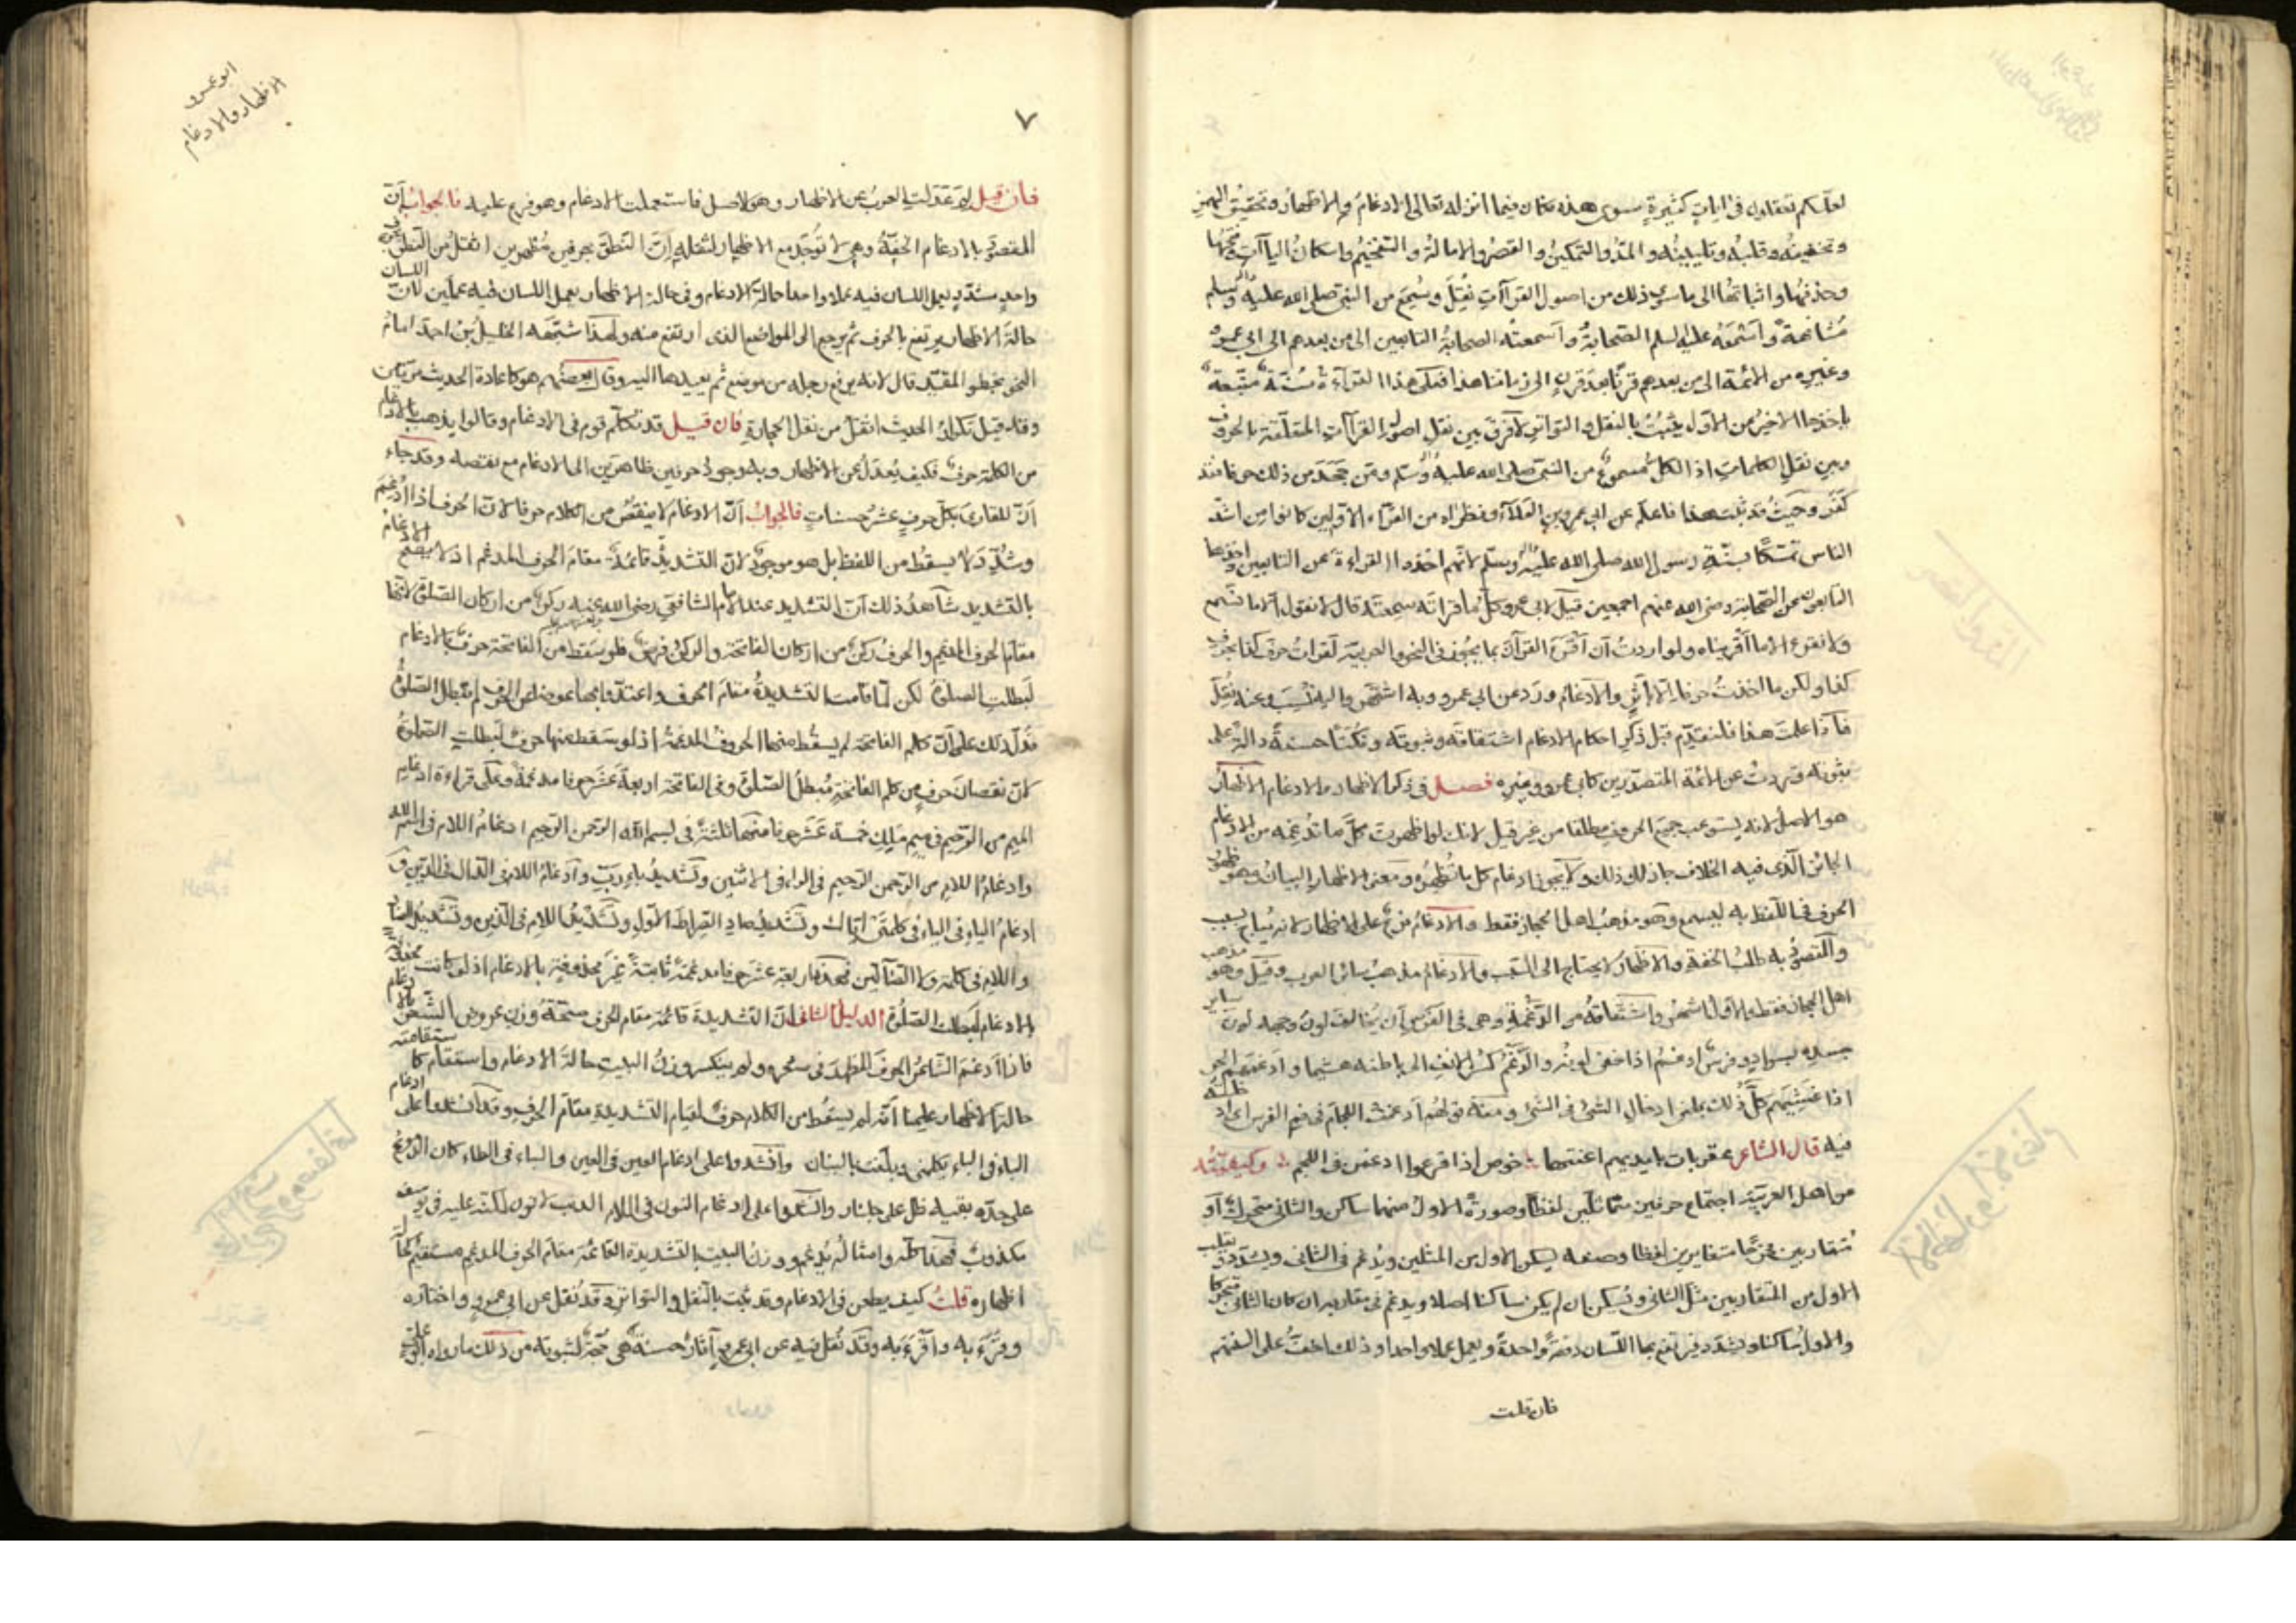 لعلكم تعقلون في آيات كثيرة سوى هذه فكان فيما انزله تعالى الادغام والاظهار وتحقيق الهمز
وتخفيفه وقلبه وتليينه والمد والتمكين والقصر والامالة والتفخيم واسكان الياآت وفتحها
وحذفها واثباتها الى ما سوى ذلك من اصول القراآت نقل وسمع من النبي صلى الله عليه وسلم
مشافهة واسمعه عليه السلم الصحابة واسمعته الصحابة التابعين الى من بعدهم الى ابي عمرو
وغيره من الائمة الى من بعدهم قرنا بعد قرن الى زماننا هذا فعلى هذا القراءة سنة متبعة
ياخذها الاخير من الاول يثبت بالنقل والتواتر لا فرق بين نقل اصول القراآت المتعلقة بالحروف
وبين نقل الكلمات اذ الكل مسموع من النبي صلى الله عليه وسلم ومن جحد من ذلك حرفا فقد
كفر وحيث قد ثبت هذا فاعلم عن ابي عمرو بن العلاء ونظراه من القراء الاولين كانوا من اشد
الناس تمسكا بسنة رسول الله صلى الله عليه وسلم لانهم اخذوا القراءة عن التابعين واخذها
التابعون عن الصحابة رضي الله عنهم اجمعين قيل لابي عمرو كل ما قراته سمعته قال لا نقول الا ما نسمع
ولا نقرء الا ما اقريناه ولو اردت ان اقرء القرآن بما يجوز في النحو والعربية لقرات حرف كذا بحرف
كذا ولكن ما اخذت حرفا الا باثر والادغام ورد عن ابي عمرو وبه اشتهر واليه نسب وعنه نقل
فاذا علمت هذا فلنقدم قبل ذكر احكام الادغام اشتقاقه وثبوته ونكتا حسنة دالة على
ثبوته وردت عن الائمة المتصدرين كابي عمرو وغيره فصل في ذكر الاظهار والادغام الاظهار
هو الاصل لانه يستوعب جميع الحروف مطلقا من غير قيل لانك لو اظهرت كل ما تدغمه من الادغام
الجائز الذي فيه الخلاف جاز لك ذلك ولا يجوز ادغام كل ما تظهره ومعنى الاظهار البيان وهو ظهور
الحرف في اللفظ به ليسمع وهو مذهب اهل الحجاز فقط والادغام فرع على الاظهار لانه يقام بسبب
والمقصود به طلب الخفة والاظهار لا يحتاج الى السبب والادغام مذهب سائر العرب وقيل وهو مذهب
اهل الحجاز فقط والاول اشهر واشتقاقه من الدغمة وهي في الفرس ان يخالف لون وجهه لون سائر
جسده بسواد وفرس ادغم اذا خفى لونه والدغم كسر الانف الى باطنه هشيما وادغمهم الحر
اذا غشيهم كل ذلك بمعنى ادخال الشئ في الشئ ومنه قولهم ادغمت اللجام في فم الفرس اي ادخلته
فيه قال الشاعر بمقربات بايديهم اعنتها خوص اذا فزعوا ادغمن في اللجم وكيفيته
من اهل العربية اجتماع حرفين متماثلين لفظا وصورة الاول منهما ساكن والثاني متحرك او
متقاربين مخرجا متغايرين لفظا وصفه يسكن الاول من المثلين ويدغم في الثاني ويشدد ويقلب
الاول من المتقاربين مثل الثاني ويسكن ان لم يكن ساكنا اصلا ويدغم في مقاربه ان كان الثاني متحركا
والاول ساكنا ويشدد فيرتفع بهما اللسان دفعة واحدة ويعمل عملا واحدا وذلك اخف على السنتهم
فان قلت
ابو عمرو
الاظهار والادغام
٧
فان قيل لم عدلت العرب عن الاظهار وهو الاصل فاستعملت الادغام وهو فرع عليه فالجواب ان
المقصود بالادغام الخفة وهي لا توجد مع الاظهار لثقله اذ النطق بحرفين مظهرين اثقل من النطق بحرف
واحد مشدد يعمل اللسان فيه عملا واحدا حالة الادغام وفي حالة الاظهار يعمل اللسان فيه عملين لان اللسان
حالة الاظهار يرتفع بالحرف ثم يرجع الى المواضع الذي ارتفع منه ولهذا شبهه الخليل بن احمد امام
النحو بخطو المقيد قال لانه يرفع رجله من موضع ثم يعيدها اليه وقال بعضهم هو كاعادة الحديث مرتين
وقد قيل تكرار الحديث اثقل من نقل الحجارة فان قيل قد تكلم قوم في الادغام وقالوا يذهب بالادغام
من الكلمة حرف فكيف يعدل عن الاظهار وبه وجود حرفين ظاهرين الى الادغام مع نقصه وقد جاء
ان للقارئ بكل حرف عشر حسنات فالجواب ان الادغام لا ينقص من الكلام حرفا لان الحرف اذا ادغم
وشدد لا يسقط من اللفظ بل هو موجود لان التشديد قائمة مقام الحرف المدغم اذ لا يصح الادغام
بالتشديد شاهد ذلك ان التشديد عند الامام الشافعي رضي الله عنه ركن من اركان الصلوة لانها
مقام الحرف المدغم والحرف ركن من اركان الفاتحة والركن فرض فلو سقط من الفاتحة حرف بالادغام
لبطلت الصلوة لكن لما قامت التشديدة مقام الحرف واعتد بها عوضا من الحرف لم تبطل الصلوة
فدل ذلك على ان كلم الفاتحة لم يسقط منها الحروف المدغمة اذ لو سقط منها حرف لبطلت الصلوة
لان نقصان حرف من كلم الفاتحة مبطل الصلوة وفي الفاتحة اربعة عشر حرفا مدغمة وعلى قراءة ادغام
الميم من الرحيم في ميم ملك خمسة عشر حرفا منها ثلثة في بسم الله الرحمن الرحيم ادغام اللام في اسم الله
وادغام اللام من الرحمن الرحيم في الراء في الاثنين وتشديد باء رب وادغام اللام في الدال في الدين و
ادغام الياء في الياء في كلمتي اياك وتشديد صاد الصراط الاول وتشديد اللام في الذين وتشديد الضاد
واللام في كلمة ولا الضالين فهذه اربعة عشر حرفا مدغمة ثابتة غير محذوفة بالادغام اذ لو كانت محذوفة
بالادغام لبطلت الصلوة الدليل الثاني ان التشديدة قائمة مقام الحرف صحة وزن عروض الشعر بالادغام
فاذا ادغم الشاعر الحرف المظهر في شعره ولم ينكسر وزن البيت حالة الادغام واستقام كاستقامته
حالة الاظهار علمنا انه لم يسقط من الكلام حرف لقيام التشديدة مقام الحرف وقد انشدوا على ادغام
الباء في الباء وانشدوا على ادغام العين في العين والباء في الطاء كان
على خده وانشدوا على ادغام النون في اللام
مكذوب فهذا كله وامثاله يدغم ووزن البيت بالتشديدة القائمة مقام الحرف المدغم مستقيم كما
اظهاره قلت كيف يطعن في الادغام وقد ثبت بالنقل والتواتر وقد نقل عن ابي عمرو واختاره
وقرء به واقرء به وقد نقل فيه عن ابي عمرو آثار حسنة هي حجة لثبوته من ذلك ما رواه